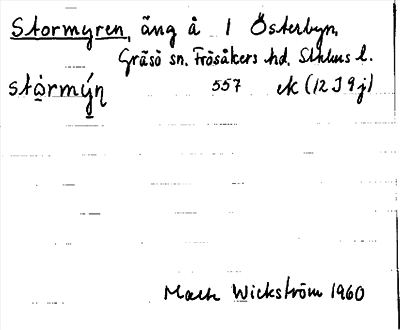 Stormyren, äng å 1 Österbyn,
Gräsö sn. Frösåkers hd. Sthlms l.
stòrmýn 557 ek (12 I 9 j)
Wickström 1960